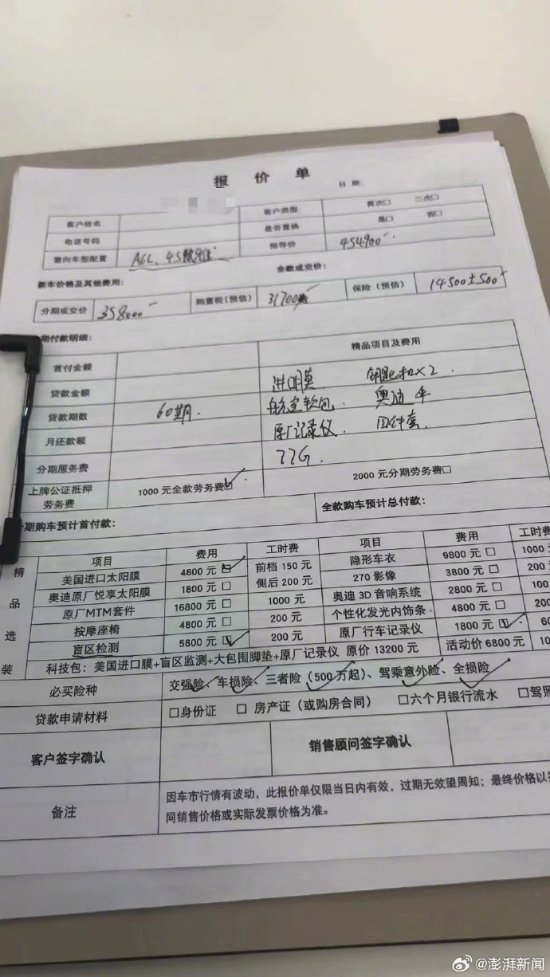 报价单
日期：
客户姓名 客户类型 首次□ 二次□
电话号码 是否置换 是□ 否□
意向车型配置 A6L. 45 指导价 454900
新车价格及其他费用： 全款成交价：
分期成交价 358000 购置税(预估) 31700 保险（预估） 14500±500
期付款明细：
首付金额 精品项目及费用
贷款金额 钥匙扣×2
贷款期数 60期. 航空软包. 奥迪伞
月还款额 原厂记录仪
分期服务费 77G.
上牌公证抵押劳务费 1000元全款劳务费☑ 2000元分期劳务费□
分期购车预计首付款： 全款购车预计总付款：
精品选装
项目 费用 工时费 项目 费用 工时费
美国进口太阳膜 4800元☑ 前档150元 隐形车衣 9800元□ 1000
奥迪原厂悦享太阳膜 1800元□ 侧后200元 270影像 3800元□ 200
原厂MTM套件 16800元□ 1000元 奥迪3D音响系统 2800元□ 100
按摩座椅 4800元□ 200元 个性化发光内饰条 4800元□ 200
盲区检测 5800元☑ 200元 原厂行车记录仪 1800元☑ 100
科技包：美国进口膜+盲区监测+大包围脚垫+原厂记录仪 原价13200元 活动价6800元
必买险种 交强险、车损险、三者险（500万起）、驾乘意外险、全损险
贷款申请材料 □身份证 □房产证（或购房合同） □六个月银行流水 □驾照
客户签字确认 销售顾问签字确认
备注 因车市行情有波动，此报价单仅限当日内有效，过期无效望周知；最终价格以
同销售价格或实际发票价格为准。
@澎湃新闻